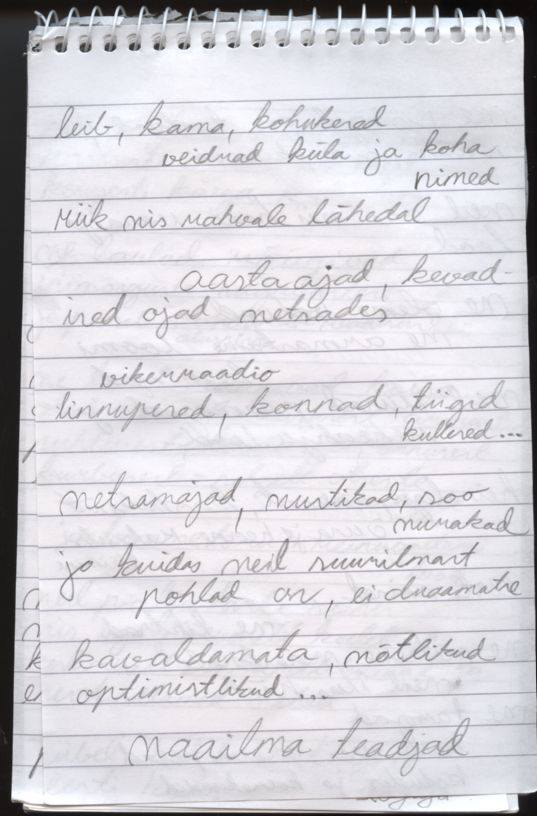 leib, kama, kohukered
veidrad küla ja koha
nimed
riik mis rahvale lähedal
aasta ajad, kevad-
ised ojad metsades
vikerraadio
linnupered, konnad, tiigid
kullered...
metsamajad, mustikad, soo
murakad
ja kuidas meil suurilmast
pohlad on, ei draamatse
kavaldamata, mõtlikud
optimistlikud...
maailma teadjad